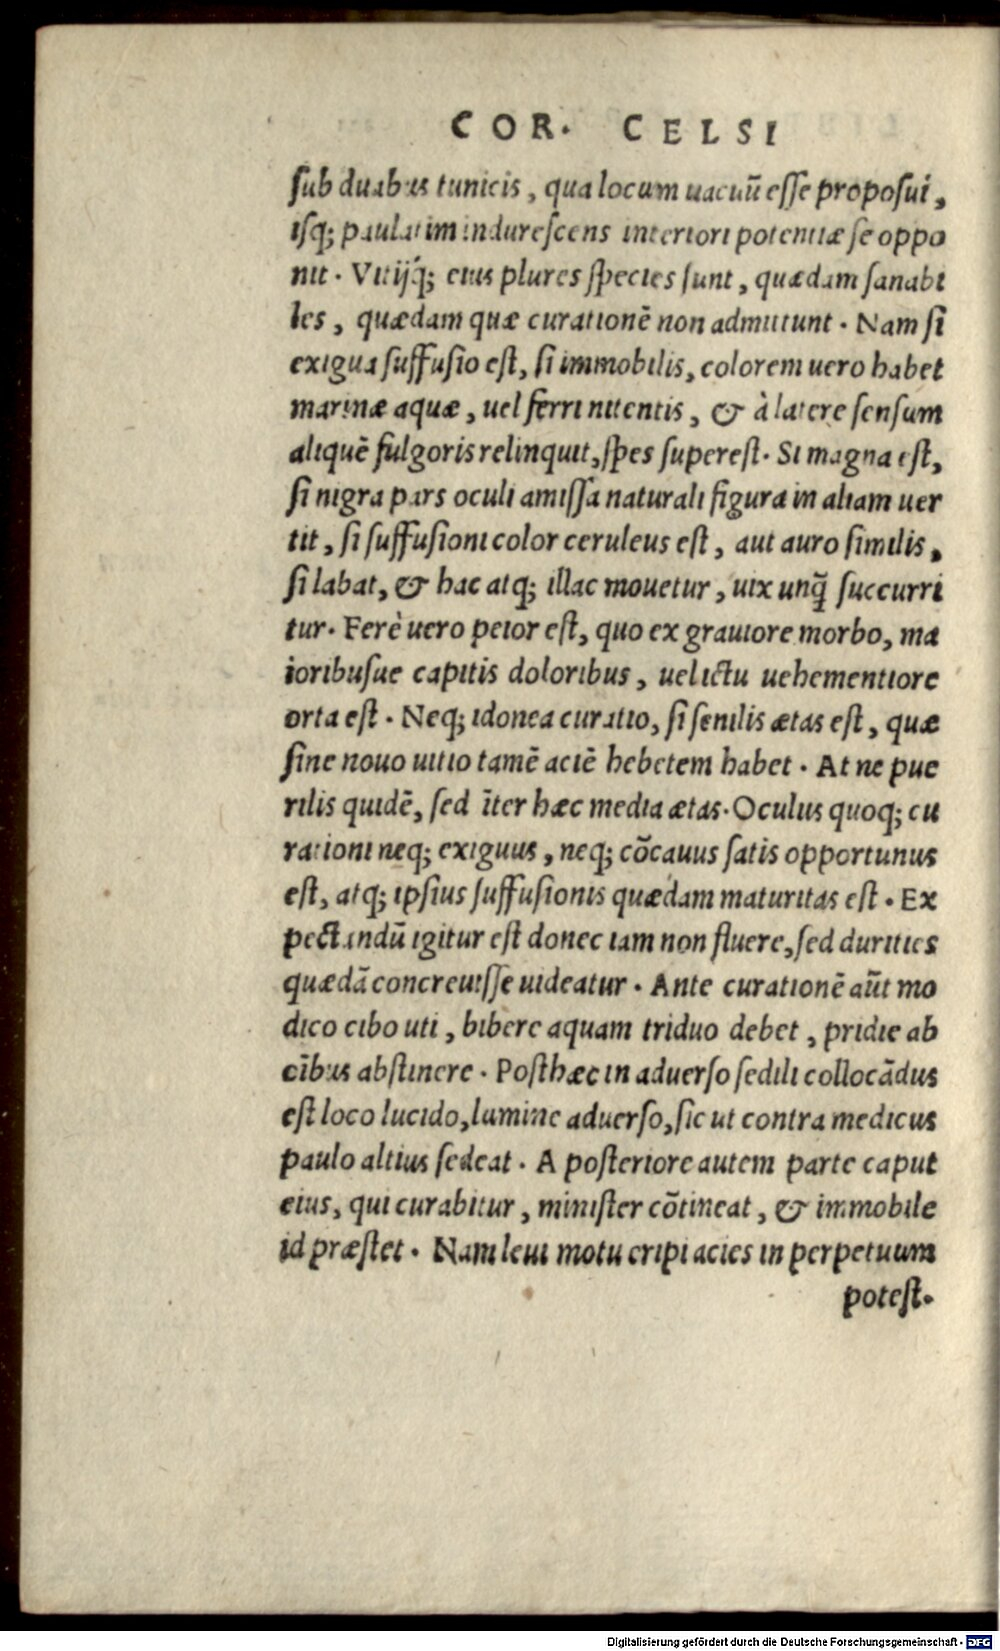 COR. CELSI
ſub duabus tunicis, qua locum uacuũ eſſe propoſui,
iſq; paulatim indureſcens interiori potentiæ ſe oppo
nit. Vitijq́; eius plures ſpecies ſunt, quædam ſanabi
les, quædam quæ curationē non admittunt. Nam ſi
exigua ſuffuſio eſt, ſi immobilis, colorem uero habet
marinæ aquæ, uel ferri nitentis, & à latere ſenſum
aliquē fulgoris relinquit, ſpes ſupereſt. Si magna eſt,
ſi nigra pars oculi amiſſa naturali figura in aliam uer
tit, ſi ſuffuſioni color ceruleus eſt, aut auro ſimilis,
ſi labat, & hac atq; illac mouetur, uix unq̃ ſuccurri
tur. Ferè uero peior eſt, quo ex grauiore morbo, ma
ioribuſue capitis doloribus, uel ictu uehementiore
orta eſt. Neq; idonea curatio, ſi ſenilis ætas eſt, quæ
ſine nouo uitio tamē aciē hebetem habet. At ne pue
rilis quidē, ſed ĩter hæc media ætas. Oculus quoq; cu
rationi neq; exiguus, neq; cõcauus ſatis opportunus
eſt, atq; ipſius ſuffuſionis quædam maturitas eſt. Ex
pectandũ igitur eſt donec iam non fluere, ſed durities
quædã concreuiſſe uideatur. Ante curationē aũt mo
dico cibo uti, bibere aquam triduo debet, pridie ab
oĩbus abſtinere. Poſthæc in aduerſo ſedili collocãdus
eſt loco lucido, lumine aduerſo, ſic ut contra medicus
paulo altius ſedeat. A poſteriore autem parte caput
eius, qui curabitur, miniſter cõtineat, & immobile
id præſtet. Nam leui motu eripi acies in perpetuum
poteſt.
Digitalisierung gefördert durch die Deutsche Forschungsgemeinschaft - DFG